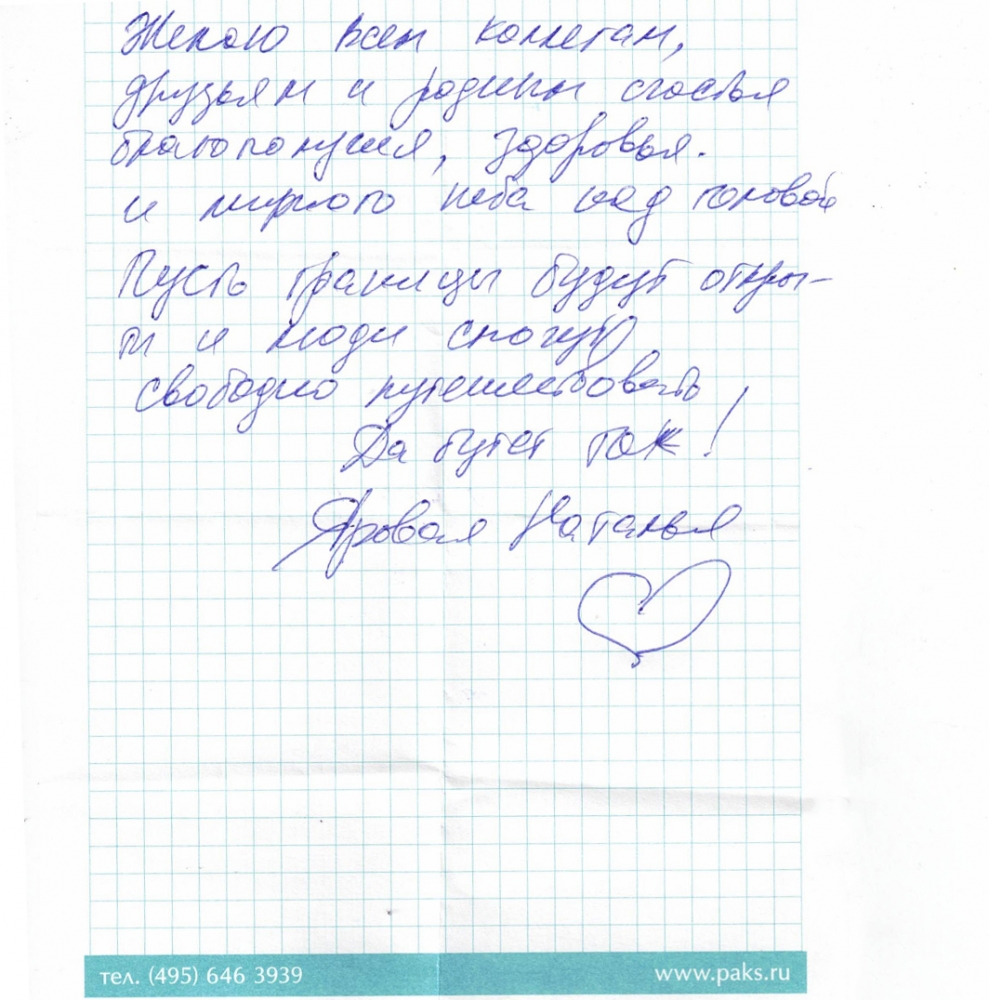 Желаю всем коллегам,
друзьям и родным счастья
благополучия, здоровья.
и мирного неба над головой
Пусть границы будут откры-
ты и люди смогут
свободно путешествовать
Да будет так!
Яровая Наталья
тел. (495) 646 3939 www.paks.ru